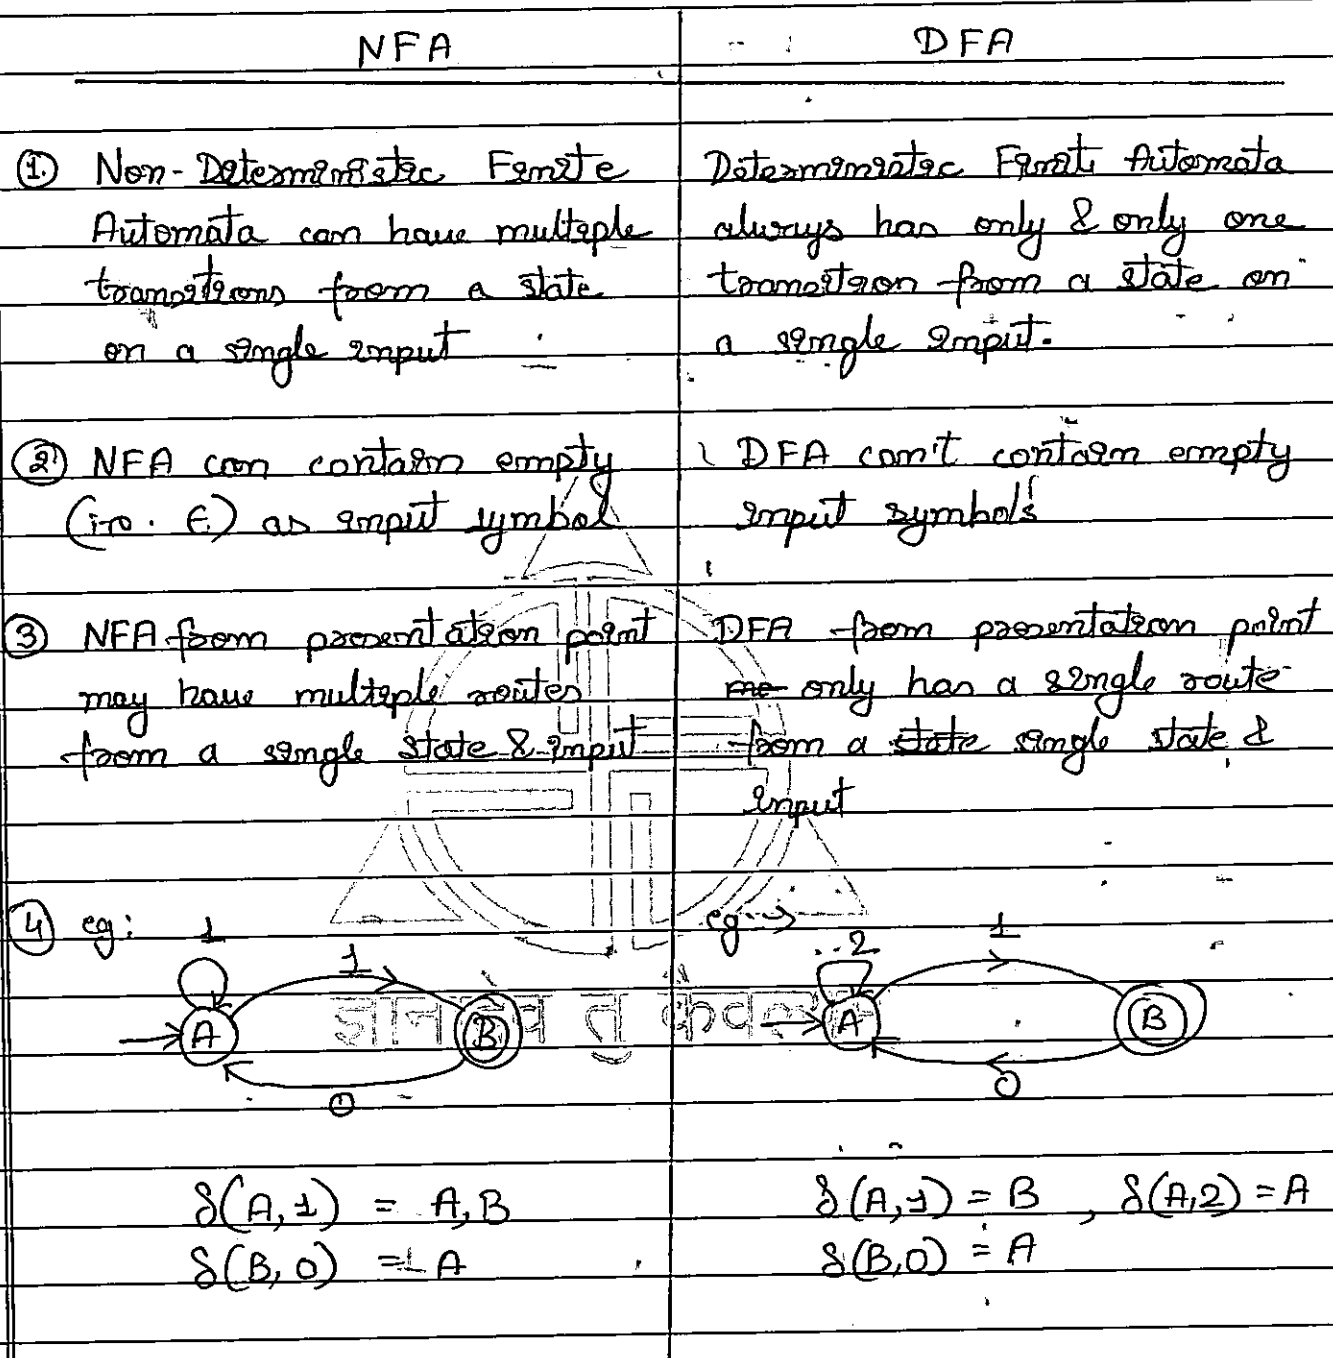 NFA
DFA
① Non-Deterministic Finite
Automata can have multiple
transitions from a state
on a single input
Deterministic Finite Automata
always has only & only one
transition from a state on
a single input.
② NFA can contain empty
(i.e. ϵ) as input symbol
DFA can't contain empty
input symbols
③ NFA from presentation point
may have multiple routes
from a single state & input
DFA from presentation point
only has a single route
from a state single state &
input
④ eg:
1
1
A
B
0
eg →
2
1
A
B
0
ज्ञानमेव तु केवलम्
δ(A,1) = A,B
δ(B,0) = A
δ(A,1) = B , δ(A,2) = A
δ(B,0) = A